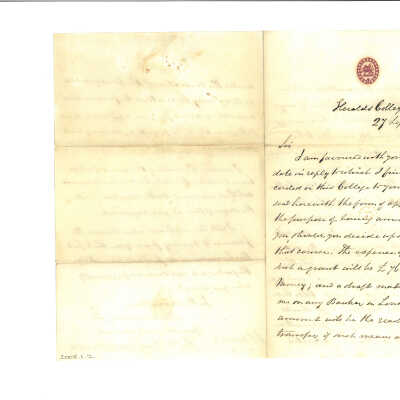 Heralds Colleg
27
Sir
I am favoured with you
date in reply to which I fin
corded in this College to you
the purpose of having arm
you should you decide upon
that course. The expense of
such a grant will be £76
Money; and a draft mad
me on any Banker in Lon
amount will be the read
transfer, if such means a